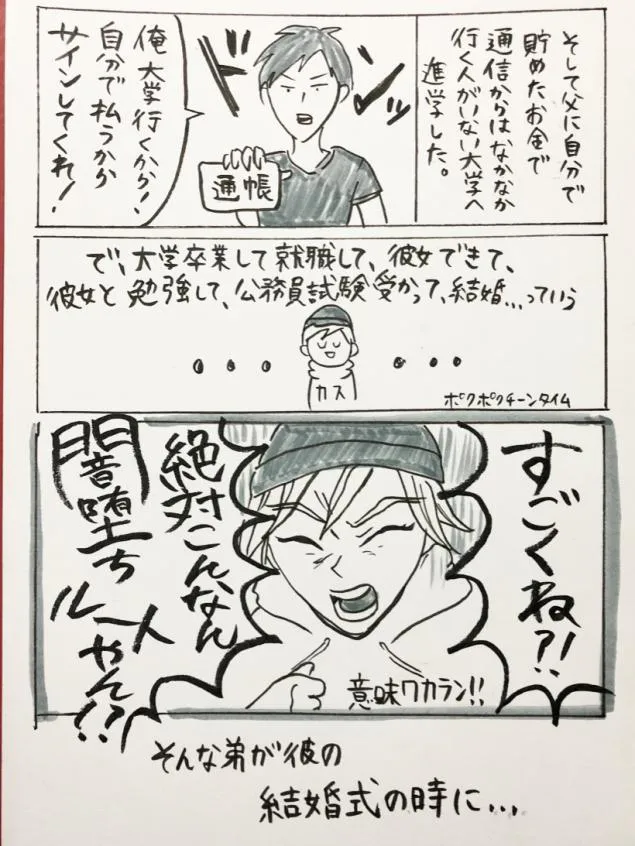 そして父に自分で
貯めたお金で
通信からはなかなか
行く人がいない大学へ
進学した。
ドドンッ
通帳
俺大学行くから!
自分で払うから
サインしてくれ!
で、大学卒業して就職して、彼女できて、
彼女と勉強して、公務員試験受かって、結婚...っていう
・・・
カス
・・・
ポクポクチーンタイム
すごくね?!
絶対こんなん
闇堕ち
ルートやん!?
意味ワカラン!!
そんな弟が彼の
結婚式の時に...